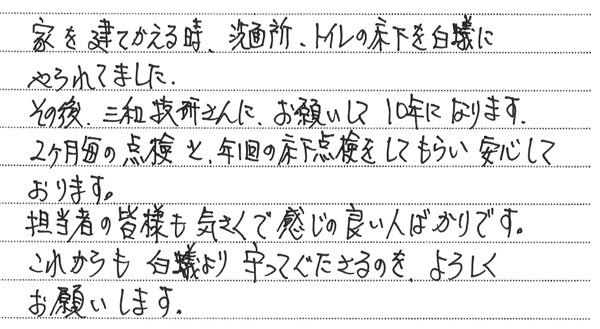 家を建てかえる時、洗面所、トイレの床下を白蟻に
やられてました.
その後、三和技研さんに、お願いして10年になります.
2ヶ月毎の点検と、年1回の床下点検をしてもらい安心して
おります。
担当者の皆様も気さくで感じの良い人ばかりです。
これからも白蟻より守ってくださるのを、よろしく
お願いします.